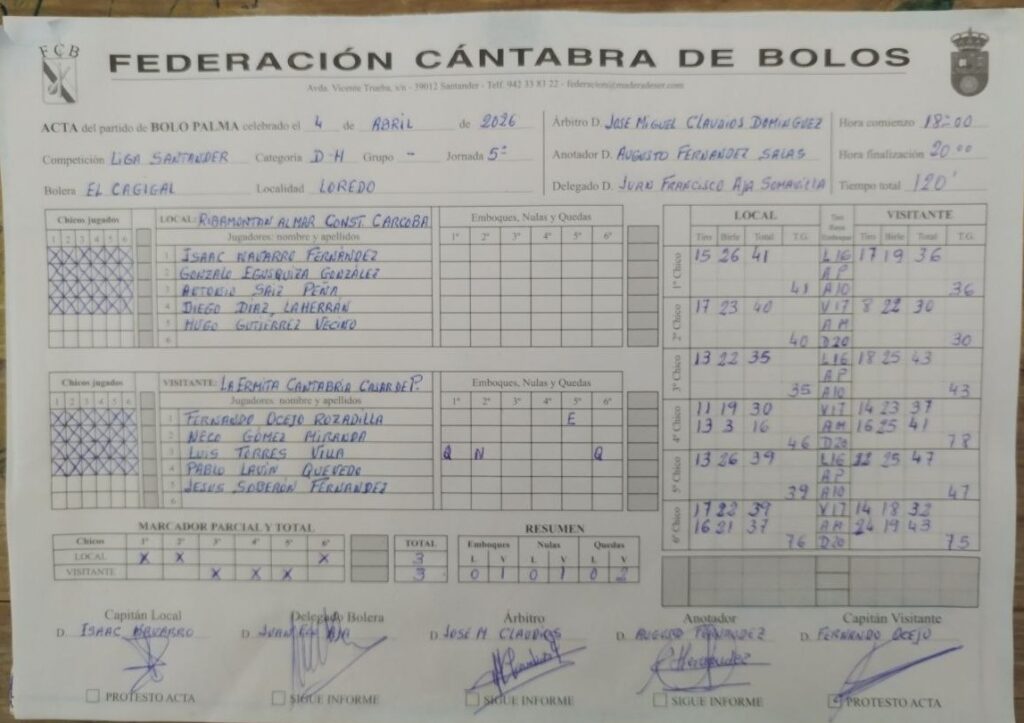 FCB
FEDERACIÓN CÁNTABRA DE BOLOS
Avda. Vicente Trueba, s/n - 39012 Santander - Telf. 942 33 83 22 - federacion@maderadeser.com
ACTA del partido de BOLO PALMA celebrado el 4 de ABRIL de 2026
Competición LIGA SANTANDER Categoría D-H Grupo - Jornada 5ª
Bolera EL CAGIGAL Localidad LOREDO
Árbitro D. JOSE MIGUEL CLAUDIOS DOMINGUEZ
Anotador D. AUGUSTO FERNANDEZ SALAS
Delegado D. JUAN FRANCISCO AJA SOMAVILLA
Hora comienzo 18:00
Hora finalización 20:00
Tiempo total 120'
Chicos jugados
1 2 3 4 5 6
LOCAL: RIBAMONTAN AL MAR CONST. CARCOBA
Jugadores: nombre y apellidos
1 ISAAC NAVARRO FERNÁNDEZ
2 GONZALO EGUSQUIZA GONZÁLEZ
3 ANTONIO SAIZ PEÑA
4 DIEGO DIAZ LAHERRAN
5 HUGO GUTIÉRREZ VECINO
6
Emboques, Nulas y Quedas
1º 2º 3º 4º 5º 6º
Chicos jugados
1 2 3 4 5 6
VISITANTE: LA ERMITA CANTABRIA CASAR DE P.
Jugadores: nombre y apellidos
1 FERNANDO OCEJO ROZADILLA
2 NECO GÓMEZ MIRANDA
3 LUIS TORRES VILLA
4 PABLO LAVÍN QUEVEDO
5 JESUS SOBERÓN FERNANDEZ
6
Emboques, Nulas y Quedas
1º 2º 3º 4º 5º 6º
E
Q N Q
LOCAL VISITANTE
Tiro Birle Total T.G. Tiro Raya Emboque Tiro Birle Total T.G.
1º Chico 15 26 41 L16 17 19 36
AP
41 A10 36
2º Chico 17 23 40 V17 8 22 30
AM
40 D20 30
3º Chico 13 22 35 L16 18 25 43
AP
35 A10 43
4º Chico 11 19 30 V17 14 23 37
13 3 16 AM 16 25 41
46 D20 78
5º Chico 13 26 39 L16 22 25 47
AP
39 A10 47
6º Chico 17 22 39 V17 14 18 32
16 21 37 AM 24 19 43
76 D20 75
MARCADOR PARCIAL Y TOTAL
Chicos 1º 2º 3º 4º 5º 6º TOTAL
LOCAL X X X 3
VISITANTE X X X 3
RESUMEN
Emboques Nulas Quedas
L V L V L V
0 1 0 1 0 2
Capitán Local
D. ISAAC NAVARRO
PROTESTO ACTA
Delegado Bolera
D. JUAN FCO AJA
SIGUE INFORME
Árbitro
D. JOSÉ M CLAUDIOS
SIGUE INFORME
Anotador
D. AUGUSTO FERNANDEZ
SIGUE INFORME
Capitán Visitante
D. FERNANDO OCEJO
PROTESTO ACTA